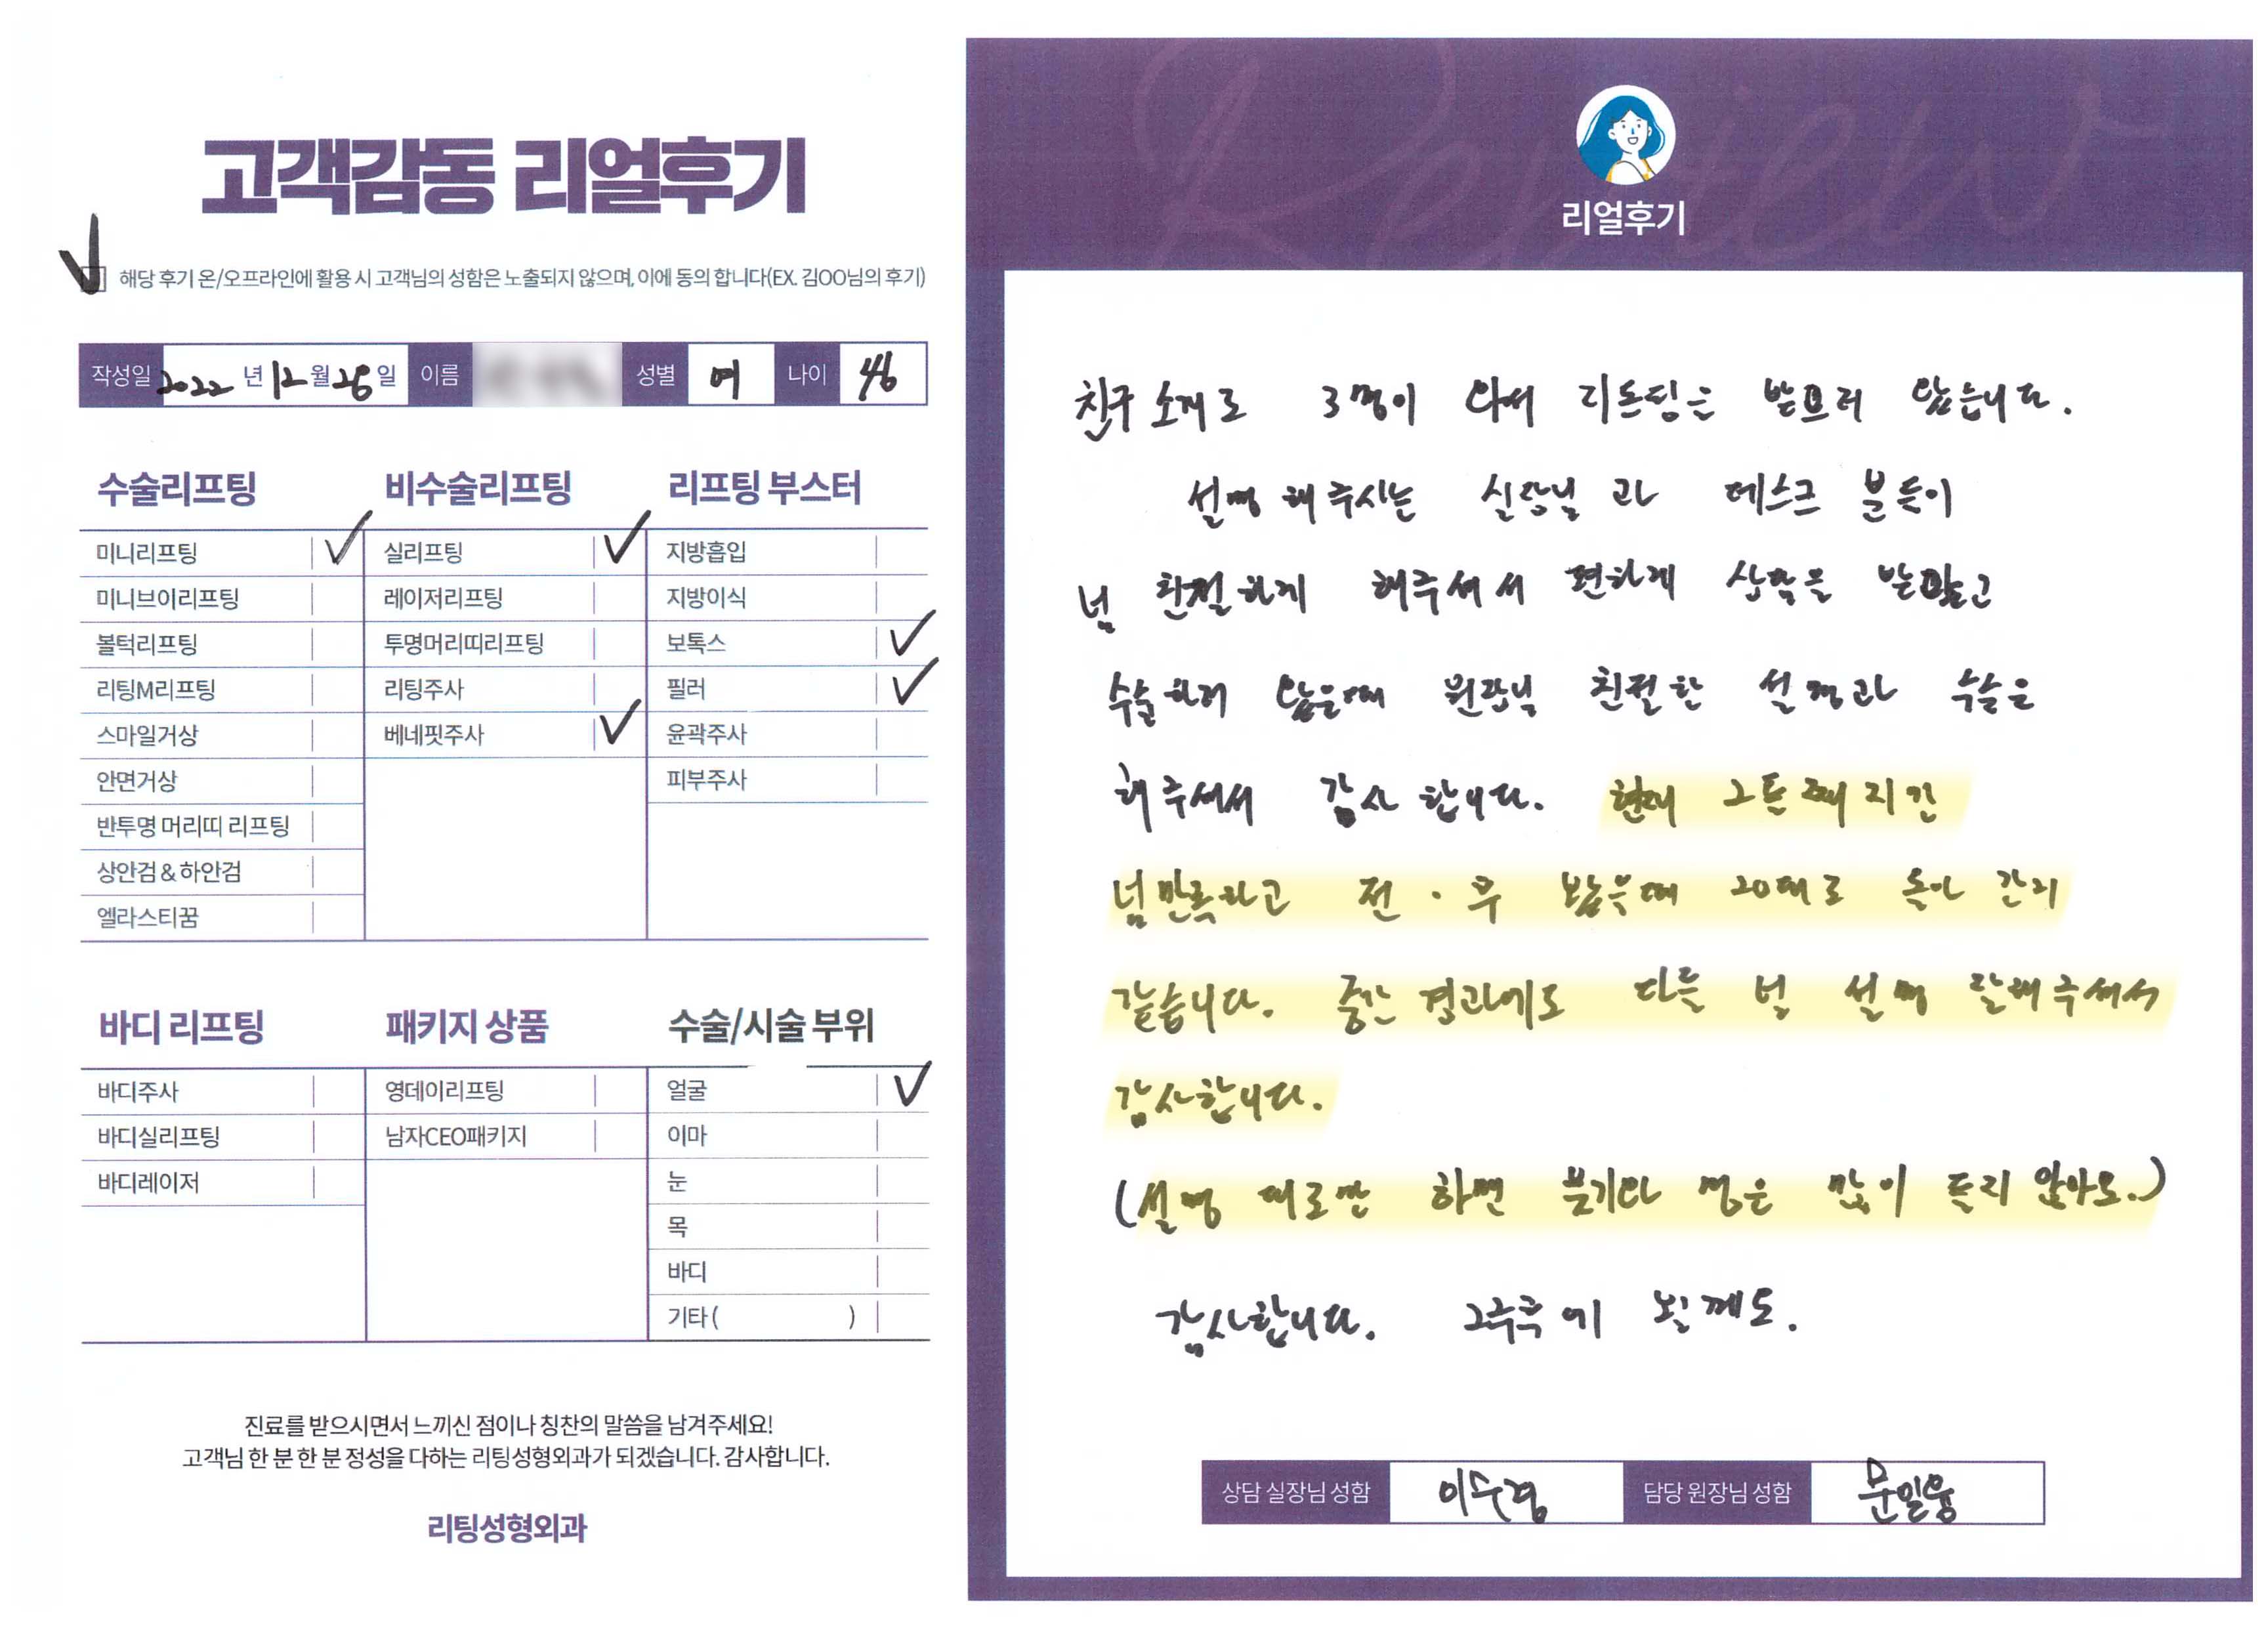 고객감동 리얼후기
해당 후기 온/오프라인에 활용 시 고객님의 성함은 노출되지 않으며, 이에 동의 합니다(EX. 김OO님의 후기)
작성일 2022 년 12 월 28 일 이름 성별 여 나이 46
수술리프팅
미니리프팅
미니브이리프팅
볼턱리프팅
리팅M리프팅
스마일거상
안면거상
반투명 머리띠 리프팅
상안검 & 하안검
엘라스티꿈
비수술리프팅
실리프팅
레이저리프팅
투명머리띠리프팅
리팅주사
베네핏주사
리프팅 부스터
지방흡입
지방이식
보톡스
필러
윤곽주사
피부주사
바디 리프팅
바디주사
바디실리프팅
바디레이저
패키지 상품
영데이리프팅
남자CEO패키지
수술/시술 부위
얼굴
이마
눈
목
바디
기타 ( )
진료를 받으시면서 느끼신 점이나 칭찬의 말씀을 남겨주세요!
고객님 한 분 한 분 정성을 다하는 리팅성형외과가 되겠습니다. 감사합니다.
리팅성형외과
Review
리얼후기
친구 소개로 3명이 와서 받으러 왔습니다.
설명 해주시는 실장님 과 데스크 분들이
넘 친절하게 해주셔서 편하게 상담을 받았고
수술하러 왔을때 원장님 친절한 설명과 수술은
해주셔서 감사 합니다. 현재
넘만족하고 전 · 후 봤을때 20대로 돌아 간거
같습니다. 중간 경과에도 다들 넘 설명 잘해주셔서
감사합니다.
(설명 대로만 하면 붓기나 멍은 많이 들지 않아요.)
감사합니다. 2주후에 뵐께요.
상담 실장님 성함 이수경 담당 원장님 성함 문일웅